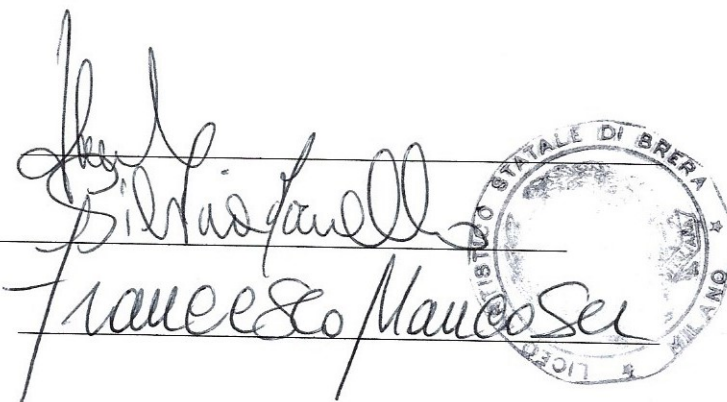 Silvia
Francesco Mancosu
LICEO ARTISTICO STATALE DI BRERA * MILANO *